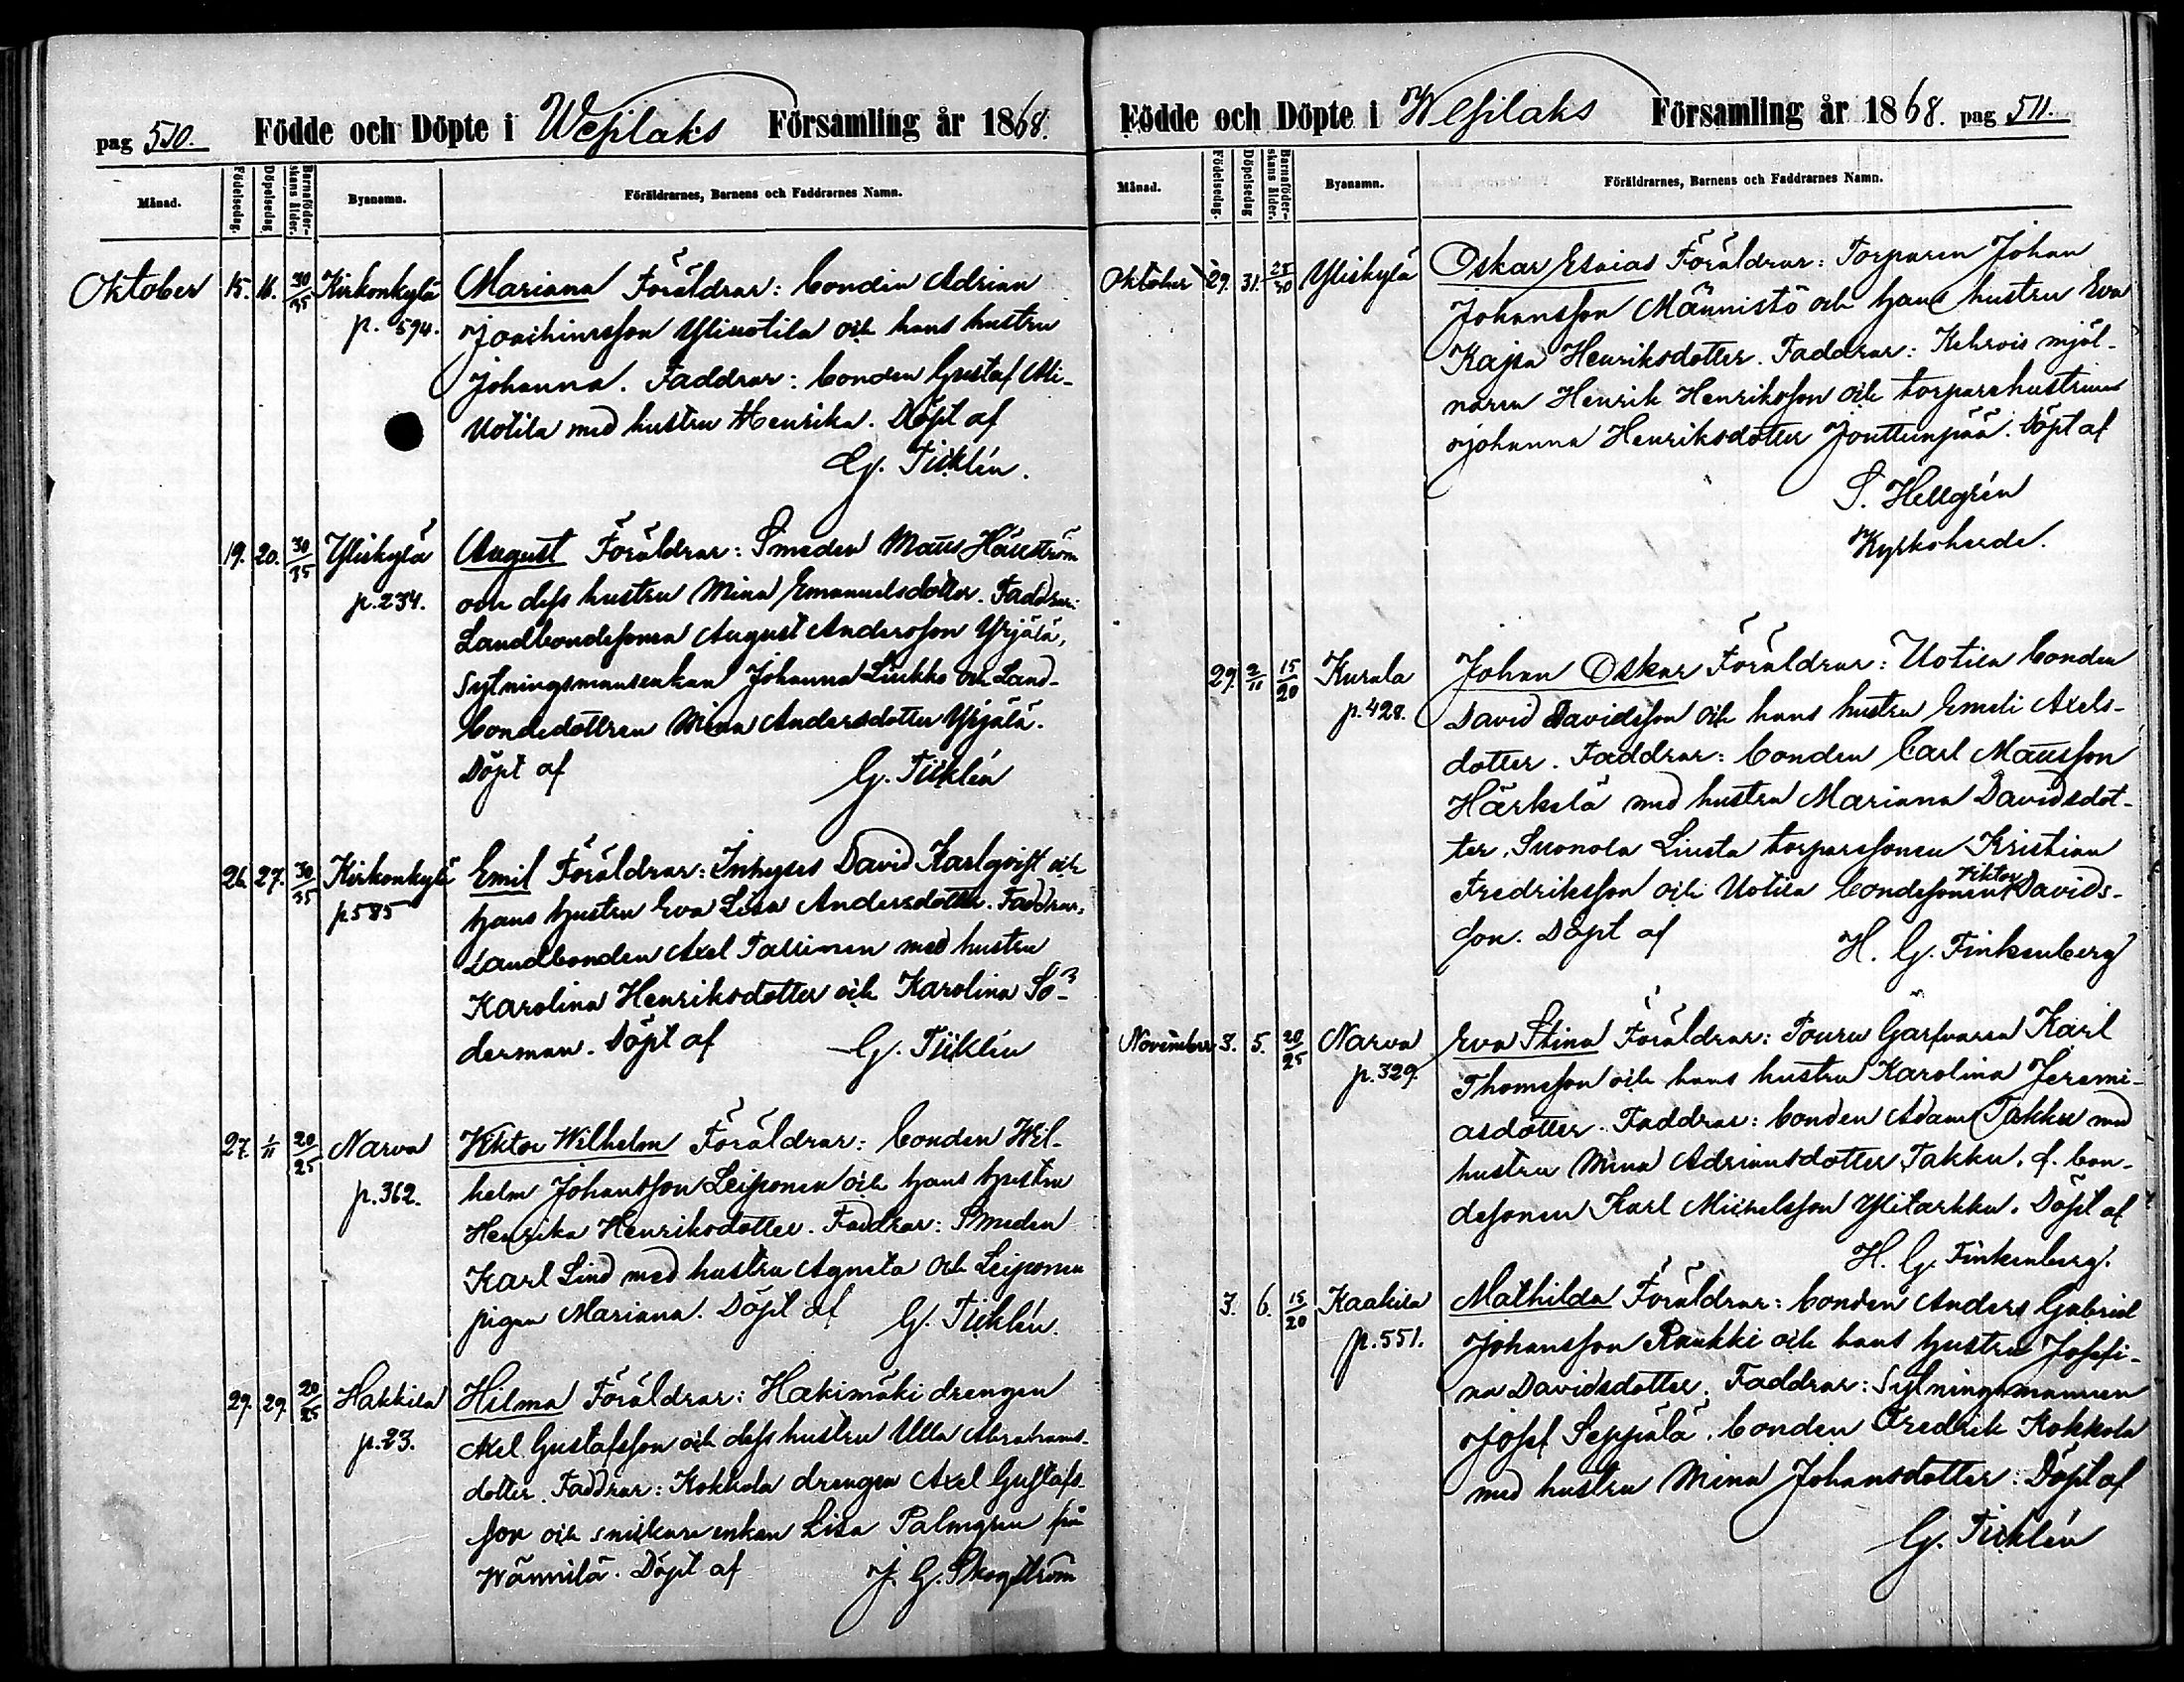 pag 510. Födde och Döpte i Wesilaks Församling år 1868.
Månad. Födelsedag. Döpelsedag. Barnaföderskans ålder. Byanamn. Föräldrarnes, Barnens och Faddrarnes Namn.
Oktober 15. 16. 30/35 Kirkonkylä Mariana Föräldrar: bonden Adrian
p. 594. Joachimsson Yliuotila och hans hustru
Johanna. Faddrar: bonden Gustaf Ali-
Uotila med hustru Henrika. Döpt af
G. Ticklén.
19. 20. 30/35 Yliskylä August Föräldrar: Smeden Matts
p. 234. och dess hustru Mina Emanuelsdotter. Faddrar:
Landbondesonen August Andersson Yrjälä,
Sytningsmansenkan Johanna Liukko och Land-
bondedottren Mina Andersdotter Yrjälä.
Döpt af G. Ticklén
26. 27. 30/35 Kirkonkylä Emil Föräldrar: Inhyses David Karlqvist och
p. 585 hans hustru Eva Lisa Andersdotter. Faddrar:
Landbonden Axel Tallinen med hustru
Karolina Henriksdotter och Karolina Sö-
derman. Döpt af G. Ticklén
27. 1/11 20/25 Narva Viktor Wilhelm Föräldrar: bonden Wil-
p. 362. helm Johansson Leiponen och hans hustru
Henrika Henriksdotter. Faddrar: Smeden
Karl Lind med hustru Agneta och Leiponen
pigan Mariana. Döpt af G. Ticklén.
29. 29. 20/25 Hakkila Hilma Föräldrar: Hakimäki drengen
p. 23. Axel Gustafsson och dess hustru Ulla Abrahams-
dotter. Faddrar: Kokkola drengen Axel Gustafs-
son och snickare enkan Lisa Palmgren från
Wännilä. Döpt af J. G. Skogström
Födde och Döpte i Wesilaks Församling år 1868. pag 511.
Månad. Födelsedag. Döpelsedag Barnaföderskans ålder. Byanamn. Föräldrarnes, Barnens och Faddrarnes Namn.
Oktober 29. 31. 25/30 Yliskylä Oskar Esaias Föräldrar: Torparen Johan
Johansson Männistö och hans hustru Eva
Kajsa Henriksdotter. Faddrar: Kehrois mjöl-
naren Henrik Henriksson och torparehustrun
Johanna Henriksdotter Jouttunpää. Döpt af
S. Hellgrén
Kyrkoherde.
29. 2/11 15/20 Kurala Johan Oskar Föräldrar: Uotila bonden
p. 428. David Davidsson och hans hustru Emeli Axels-
dotter. Faddrar: bonden Carl Mattsson
Härkälä med hustru Mariana Davidsdot-
ter, Suonola Liusta torparesonen Kristian
Fredriksson och Uotila bondesonen Viktor Davids-
son. Döpt af H. G. Finkenberg
November 3. 5. 20/25 Narva Eva Stina Föräldrar: Pouru Garfvaren Karl
p. 329. Thomsson och hans hustru Karolina Jeremi-
asdotter. Faddrar: bonden Adam Takku med
hustru Mina Adriansdotter Takku, f. bon-
desonen Karl Michelsson Ylitarkku. Döpt af
H. G. Finkenberg.
3. 6. 15/20 Kaakila Mathilda Föräldrar: bonden Anders Gabriel
p. 551. Johansson Raukki och hans hustru Josefi-
na Davidsdotter. Faddrar: Sytningsmannen
Josef Seppälä, bonden Fredrik Kokkola
med hustru Mina Johansdotter. Döpt af
G. Ticklén